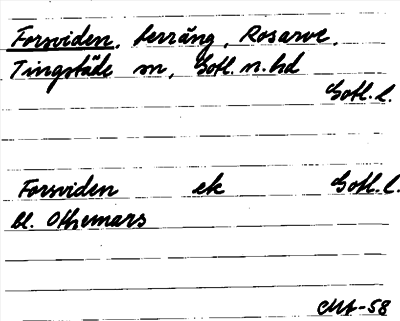 Forsviden, terräng, Rosarve,
Tingstäde sn, Gotl. n. hd
Gotl. l.
Forsviden ek Gotl. l.
bl. Othemars
CMA-58